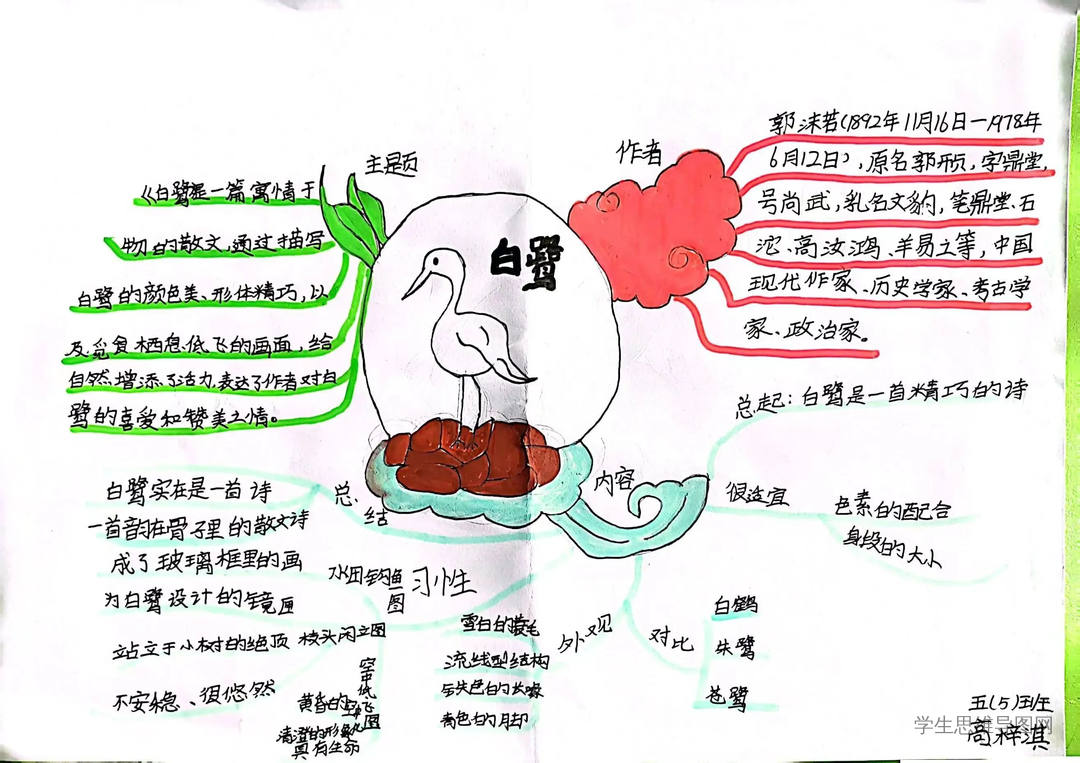 白鹭
主题
《白鹭是一篇寓情于
物的散文,通过描写
白鹭的颜色美、形体精巧,以
及觅食栖息低飞的画面,给
自然增添了活力,表达了作者对白
鹭的喜爱和赞美之情。
作者
郭沫若(1892年11月16日一1978年
6月12日),原名郭开贞,字鼎堂,
号尚武,乳名文豹,笔鼎堂、石
沱、高汝鸿、羊易之等,中国
现代作家、历史学家、考古学
家、政治家。
内容
总起:白鹭是一首精巧的诗
很适宜
色素的配合
身段的大小
对比
白鹤
朱鹭
苍鹭
外观
雪白的蓑毛
流线型结构
青色的脚
习性
水田钓鱼
图
枝头闲立图
站立于小树的绝顶
不安稳、很悠然
空中低飞图
黄昏的
清澄的形象化
具有生命
成了玻璃框里的画
为白鹭设计的镜匣
总
结
白鹭实在是一首诗
一首韵在骨子里的散文诗
五(5)班
高梓淇
学生思维导图网